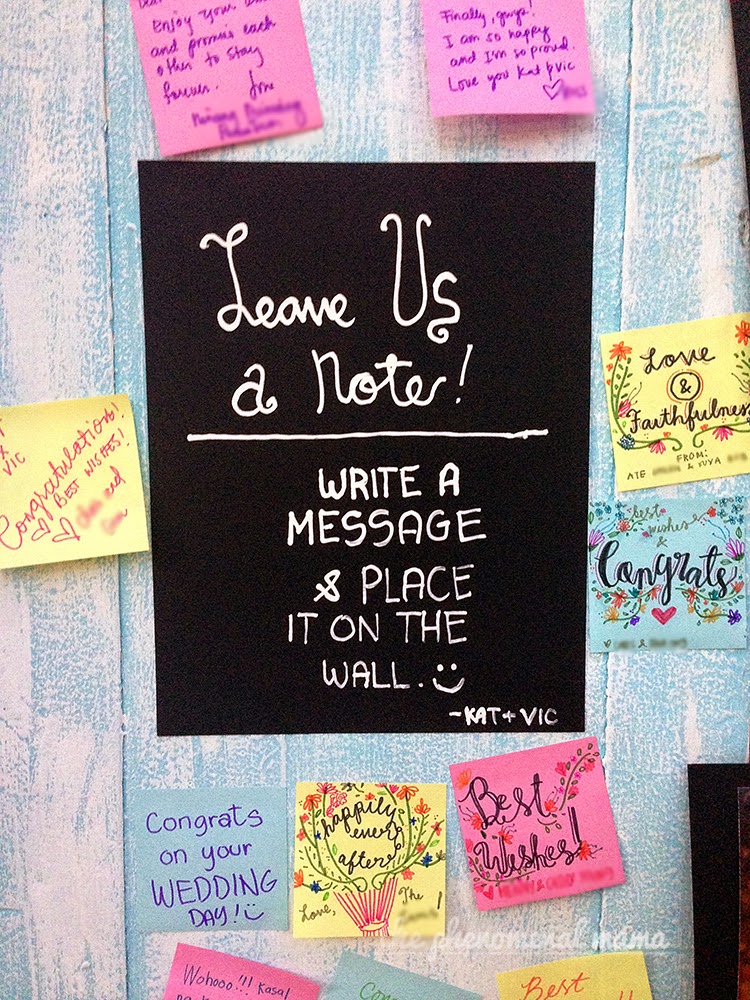 Enjoy your
and promise each
other to stay
forever.
Finally, guys!
I am so happy
and I'm so proud.
Love you Kat & Vic
Leave Us
a Note!
WRITE A
MESSAGE
& PLACE
IT ON THE
WALL. :)
-KAT + VIC
VIC
Congratulations!
BEST WISHES!
and
Love
&
Faithfulness
FROM:
ATE & KUYA
best
wishes
&
Congrats
Congrats
on your
WEDDING
DAY! :)
happily
ever
after
Love, The
Best
Wishes!
phenomenal mama
Wohooo!!! Kasal
Best